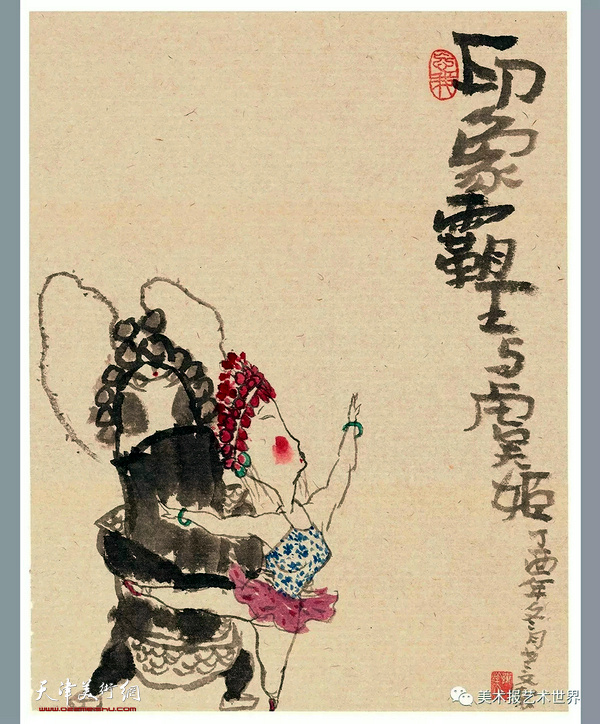 印象霸王与虞姬
丁酉年冬月
天津美術網
美术报艺术世界